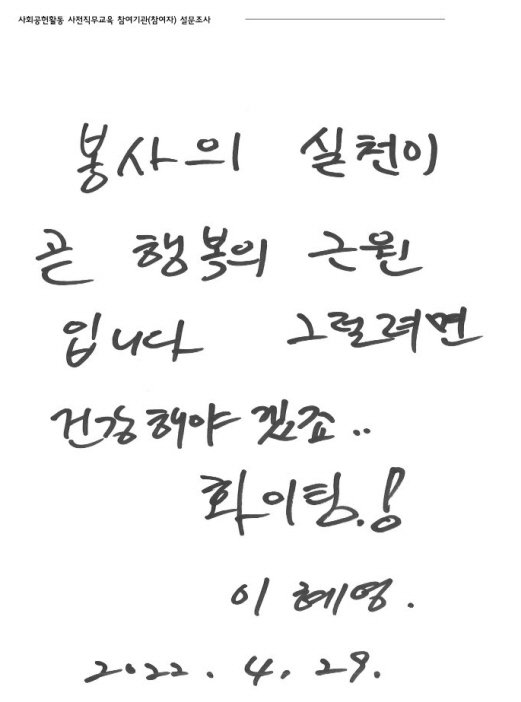 사회공헌활동 사전직무교육 참여기관(참여자) 설문조사
봉사의 실천이
곧 행복의 근원
입니다 그럴려면
건강해야 겠죠..
화이팅.!
이 혜영.
2022. 4. 29.